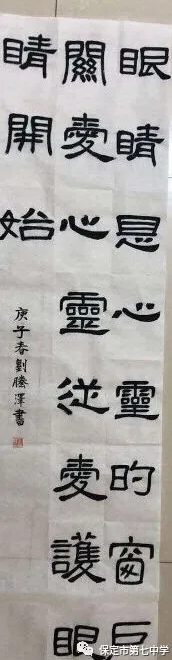 眼睛是心靈的窗户
關愛心靈從愛護眼
睛開始
庚子春劉澤書
保定市第七中学